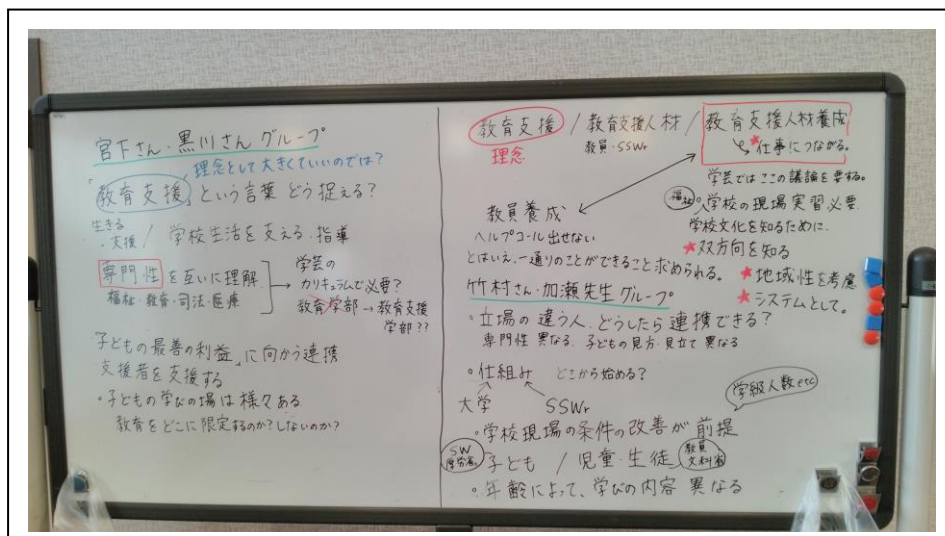 宮下さん・黒川さん グループ
理念として大きくていいのでは?
「教育支援」という言葉 どう捉える?
生きる・支援 / 学校生活を支える・指導
専門性を互いに理解
福祉・教育・司法・医療
学芸の
カリキュラムで必要?
教育学部→教育支援
学部??
「子どもの最善の利益」に向かう連携
支援者を支援する
・子どもの学びの場は様々ある
教育をどこに限定するのか?しないのか?
教育支援 / 教育支援人材 / 教育支援人材養成
理念
教員・SSWr
★仕事につながる。
学芸ではここの議論を要する。
福祉 学校の現場実習必要
学校文化を知るために.
★双方向を知る
★地域性を考慮
★システムとして。
教員養成
ヘルプコール出せない
とはいえ、一通りのことができること求められる。
竹村さん・加瀬先生 グループ
・立場の違う人、どうしたら連携できる?
専門性 異なる 子どもの見方・見立て 異なる
・仕組み どこから始める?
大学 SSWr
学級人数etc
・学校現場の条件の改善が前提
SW
厚労省
子ども / 児童・生徒
教員
文科省
・年齢によって、学びの内容 異なる